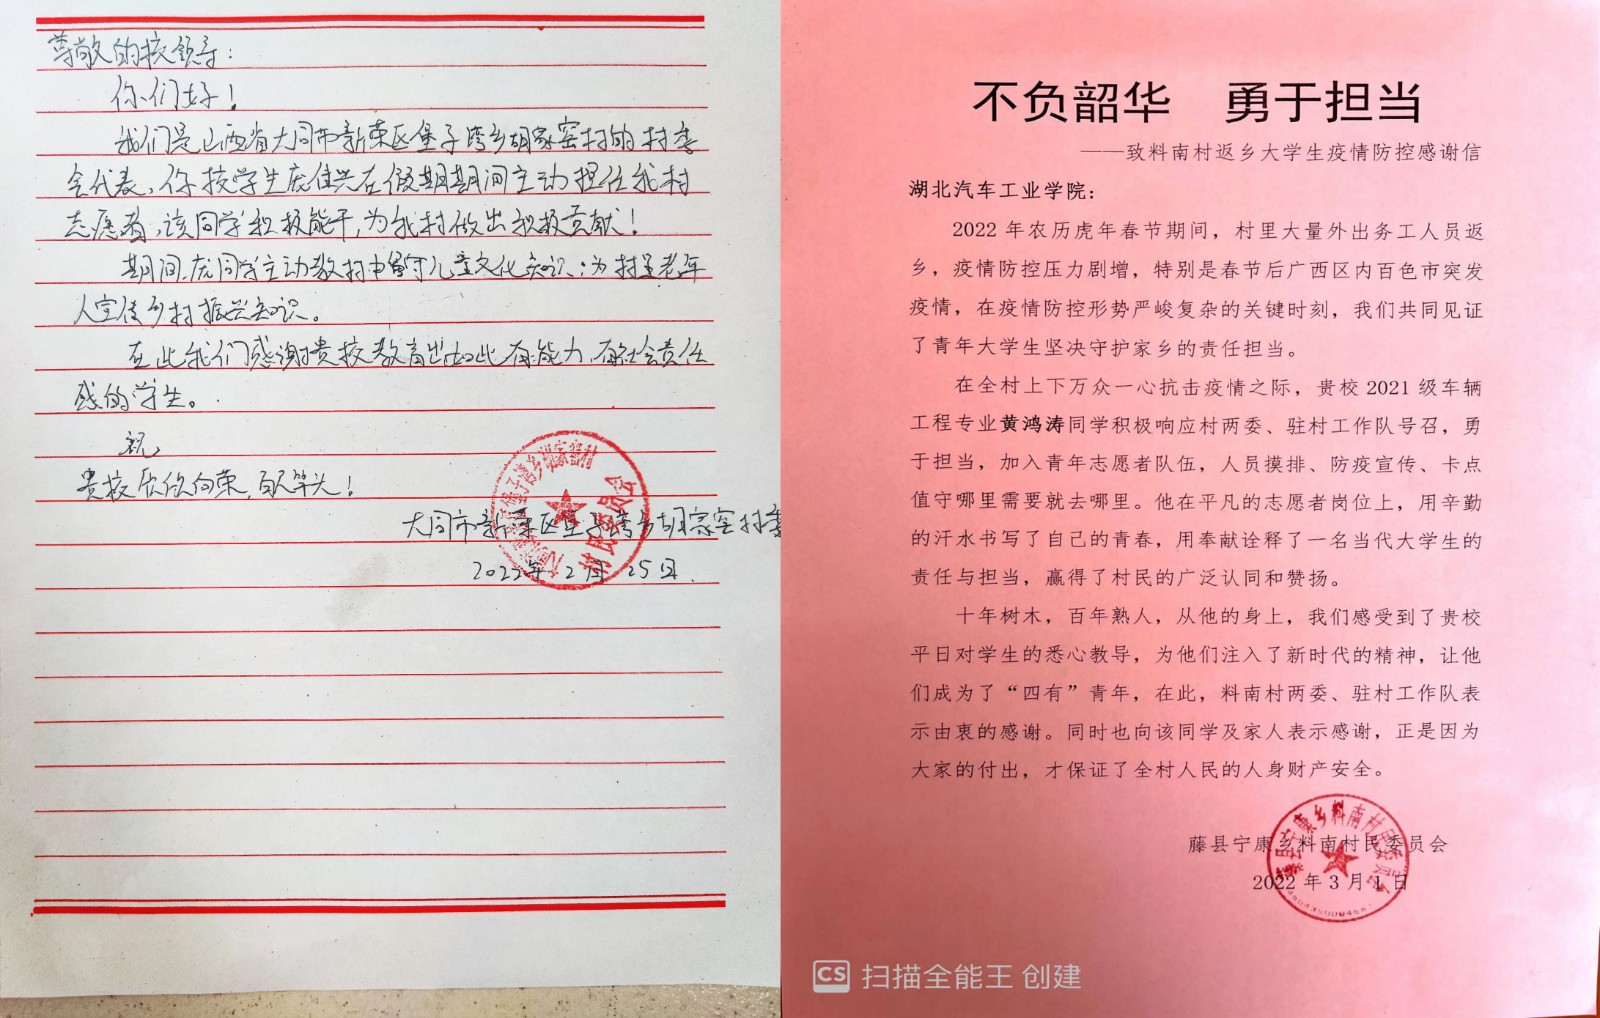 尊敬的校领导：
你们好！
我们是山西省大同市新荣区堡子湾乡胡家窑村的村委
会代表，你校学生庞佳兴在假期期间主动担任我村
志愿者，该同学积极能干，为我村做出积极贡献！
期间，庞同学主动教村中留守儿童文化知识；为村里老年
人宣传乡村振兴知识。
在此我们感谢贵校教育出如此有能力，有社会责任
感的学生。
祝
贵校欣欣向荣，百尺竿头！
大同市新荣区堡子湾乡胡家窑村委
2022年2月25日
村民委员会
不负韶华 勇于担当
——致料南村返乡大学生疫情防控感谢信
湖北汽车工业学院：
2022 年农历虎年春节期间，村里大量外出务工人员返
乡，疫情防控压力剧增，特别是春节后广西区内百色市突发
疫情，在疫情防控形势严峻复杂的关键时刻，我们共同见证
了青年大学生坚决守护家乡的责任担当。
在全村上下万众一心抗击疫情之际，贵校 2021 级车辆
工程专业黄鸿涛同学积极响应村两委、驻村工作队号召，勇
于担当，加入青年志愿者队伍，人员摸排、防疫宣传、卡点
值守哪里需要就去哪里。他在平凡的志愿者岗位上，用辛勤
的汗水书写了自己的青春，用奉献诠释了一名当代大学生的
责任与担当，赢得了村民的广泛认同和赞扬。
十年树木，百年熟人，从他的身上，我们感受到了贵校
平日对学生的悉心教导，为他们注入了新时代的精神，让他
们成为了“四有”青年，在此，料南村两委、驻村工作队表
示由衷的感谢。同时也向该同学及家人表示感谢，正是因为
大家的付出，才保证了全村人民的人身财产安全。
藤县宁康乡料南村民委员会
2022 年 3 月 1 日
藤县宁康乡料南村民委员会
CS 扫描全能王 创建